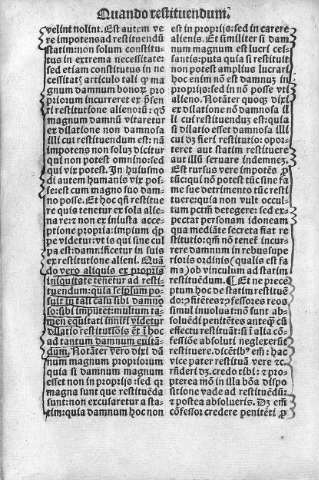 Quando restituendum.
velint nolint. Est autem ve
re impotens ad restituendū
statim: non solum constitutus
in extrema necessitate:
sed etiam constitutus in ne
cessitatis articulo tali q̄ mag
magnam damnum bonoꝝ pro
priorum incurreret ex p̄sen
ti restitutione alienoꝝ: qd̄
magnum damnū vitaretur
ex dilatione non damnosa
illi cui restituendum est: nā
impotens non solus dicitur
qui non potest omnino: sed
qui vix potest. In huiusmo
di autem humanis vix pos
se est: cum magno suo dam
no posse. Et hoc qn̄ restitue
re quis tenetur ex sola alie
na re: ⁊ non ex iniusta acce
ptione
pe videtur: vt is qui sine cul
pa est: damnificetur in suis
ex restitutione alieni. Quā
do vero aliquis ex propria
iniquitate tenetur ad resti
tuendum: quia seipsum po
suit in tali casu sibi damno
so: sibi imputet: multum ta
men equitati simul videtur
dilatio restitutiōis et in hoc
ad tantum damnum euitā
dum. Notāter vero dixi dā
num magnum propriorum
quia si damnum magnum
esset non in proprijs: sed in
magnis sunt que restituēda
sunt: non excusaretur a sta
tim: quia damnum hoc non
est in proprijs: sed in carere
alienis. Et similiter si dam
num magnum est lucri ces
santis: puta quia si restituit
non potest amplius lucrari
hoc enim nō est damnuꝫ in
proprijs: sed in nō posse vti
alieno. Notāter quoqꝫ dixi
ex dilatione nō damnosa il
li cui restituendus est: quia
si dilatio esset damnosa illi
cui dꝫ fieri restitutio: opor
teret aut statim restituere
aut illū seruare indemneꝫ.
Et rursus vere impotēs
tūc qui nō potest tūc sine fa
me sue detrimento tūc resti
tuere: quia non vult occul
tum pctm̄ detegere: sed ex
pectat personam idoneam
qua mediāte secreta fiat re
stitutio: qm̄ nō tenet̄ incur
rere damnum in rebus supe
rioris ordinis (qualis est fa
ma) ob vinculum ad statim
restituēdum. ¶ Et ne prece
ptum hoc de statim restituē
do: ⁊ fitētes ⁊ ꝯfessores reos
simul inuoluat: nō sunt ab
soluēdi penitētes anteq̄ cū
effectu restituāt: si ī alia cō
fessiōe absoluti neglexerūt
restituere. dicētibꝰ em̄: ha
c vice pater restituā vere ⁊c
rn̄deri dꝫ. credo tibi: ⁊ pro
pterea mō in illa bōa dispo
sitione vade ad restituēdū:
⁊ postea absolueris. Dꝫ em̄
cōfessor credere penitēti